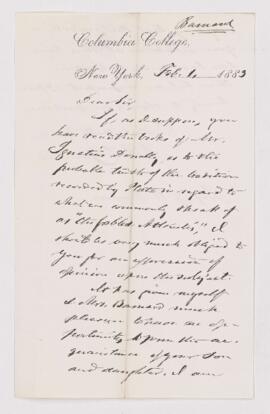 Barnard
Columbia College,
New York, Feb. 1883
Dear Sir
If, as I suppose, you
have read the book of Mr.
Ignatius Donnelly, as to the
probable truth of the tradition
recorded by Plato in regard to
what we commonly speak of
as "the fabled Atlantis," I
should be very much obliged to
you for an expression of
opinion upon the subject.
It has given myself
& Mrs. Barnard much
pleasure to have an op-
portunity to form the ac-
quaintance of your son
and daughter. I am